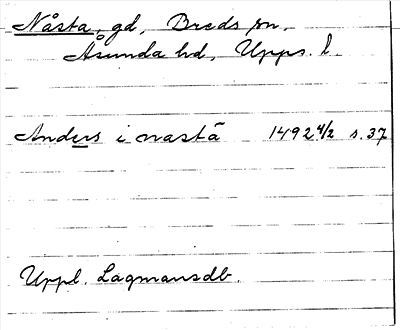 Nåsta, gd, Breds sn.
Åsunda hd, Upps. l.
Anders i nastä 1492 4/2 s. 37
Uppl. Lagmansdb.